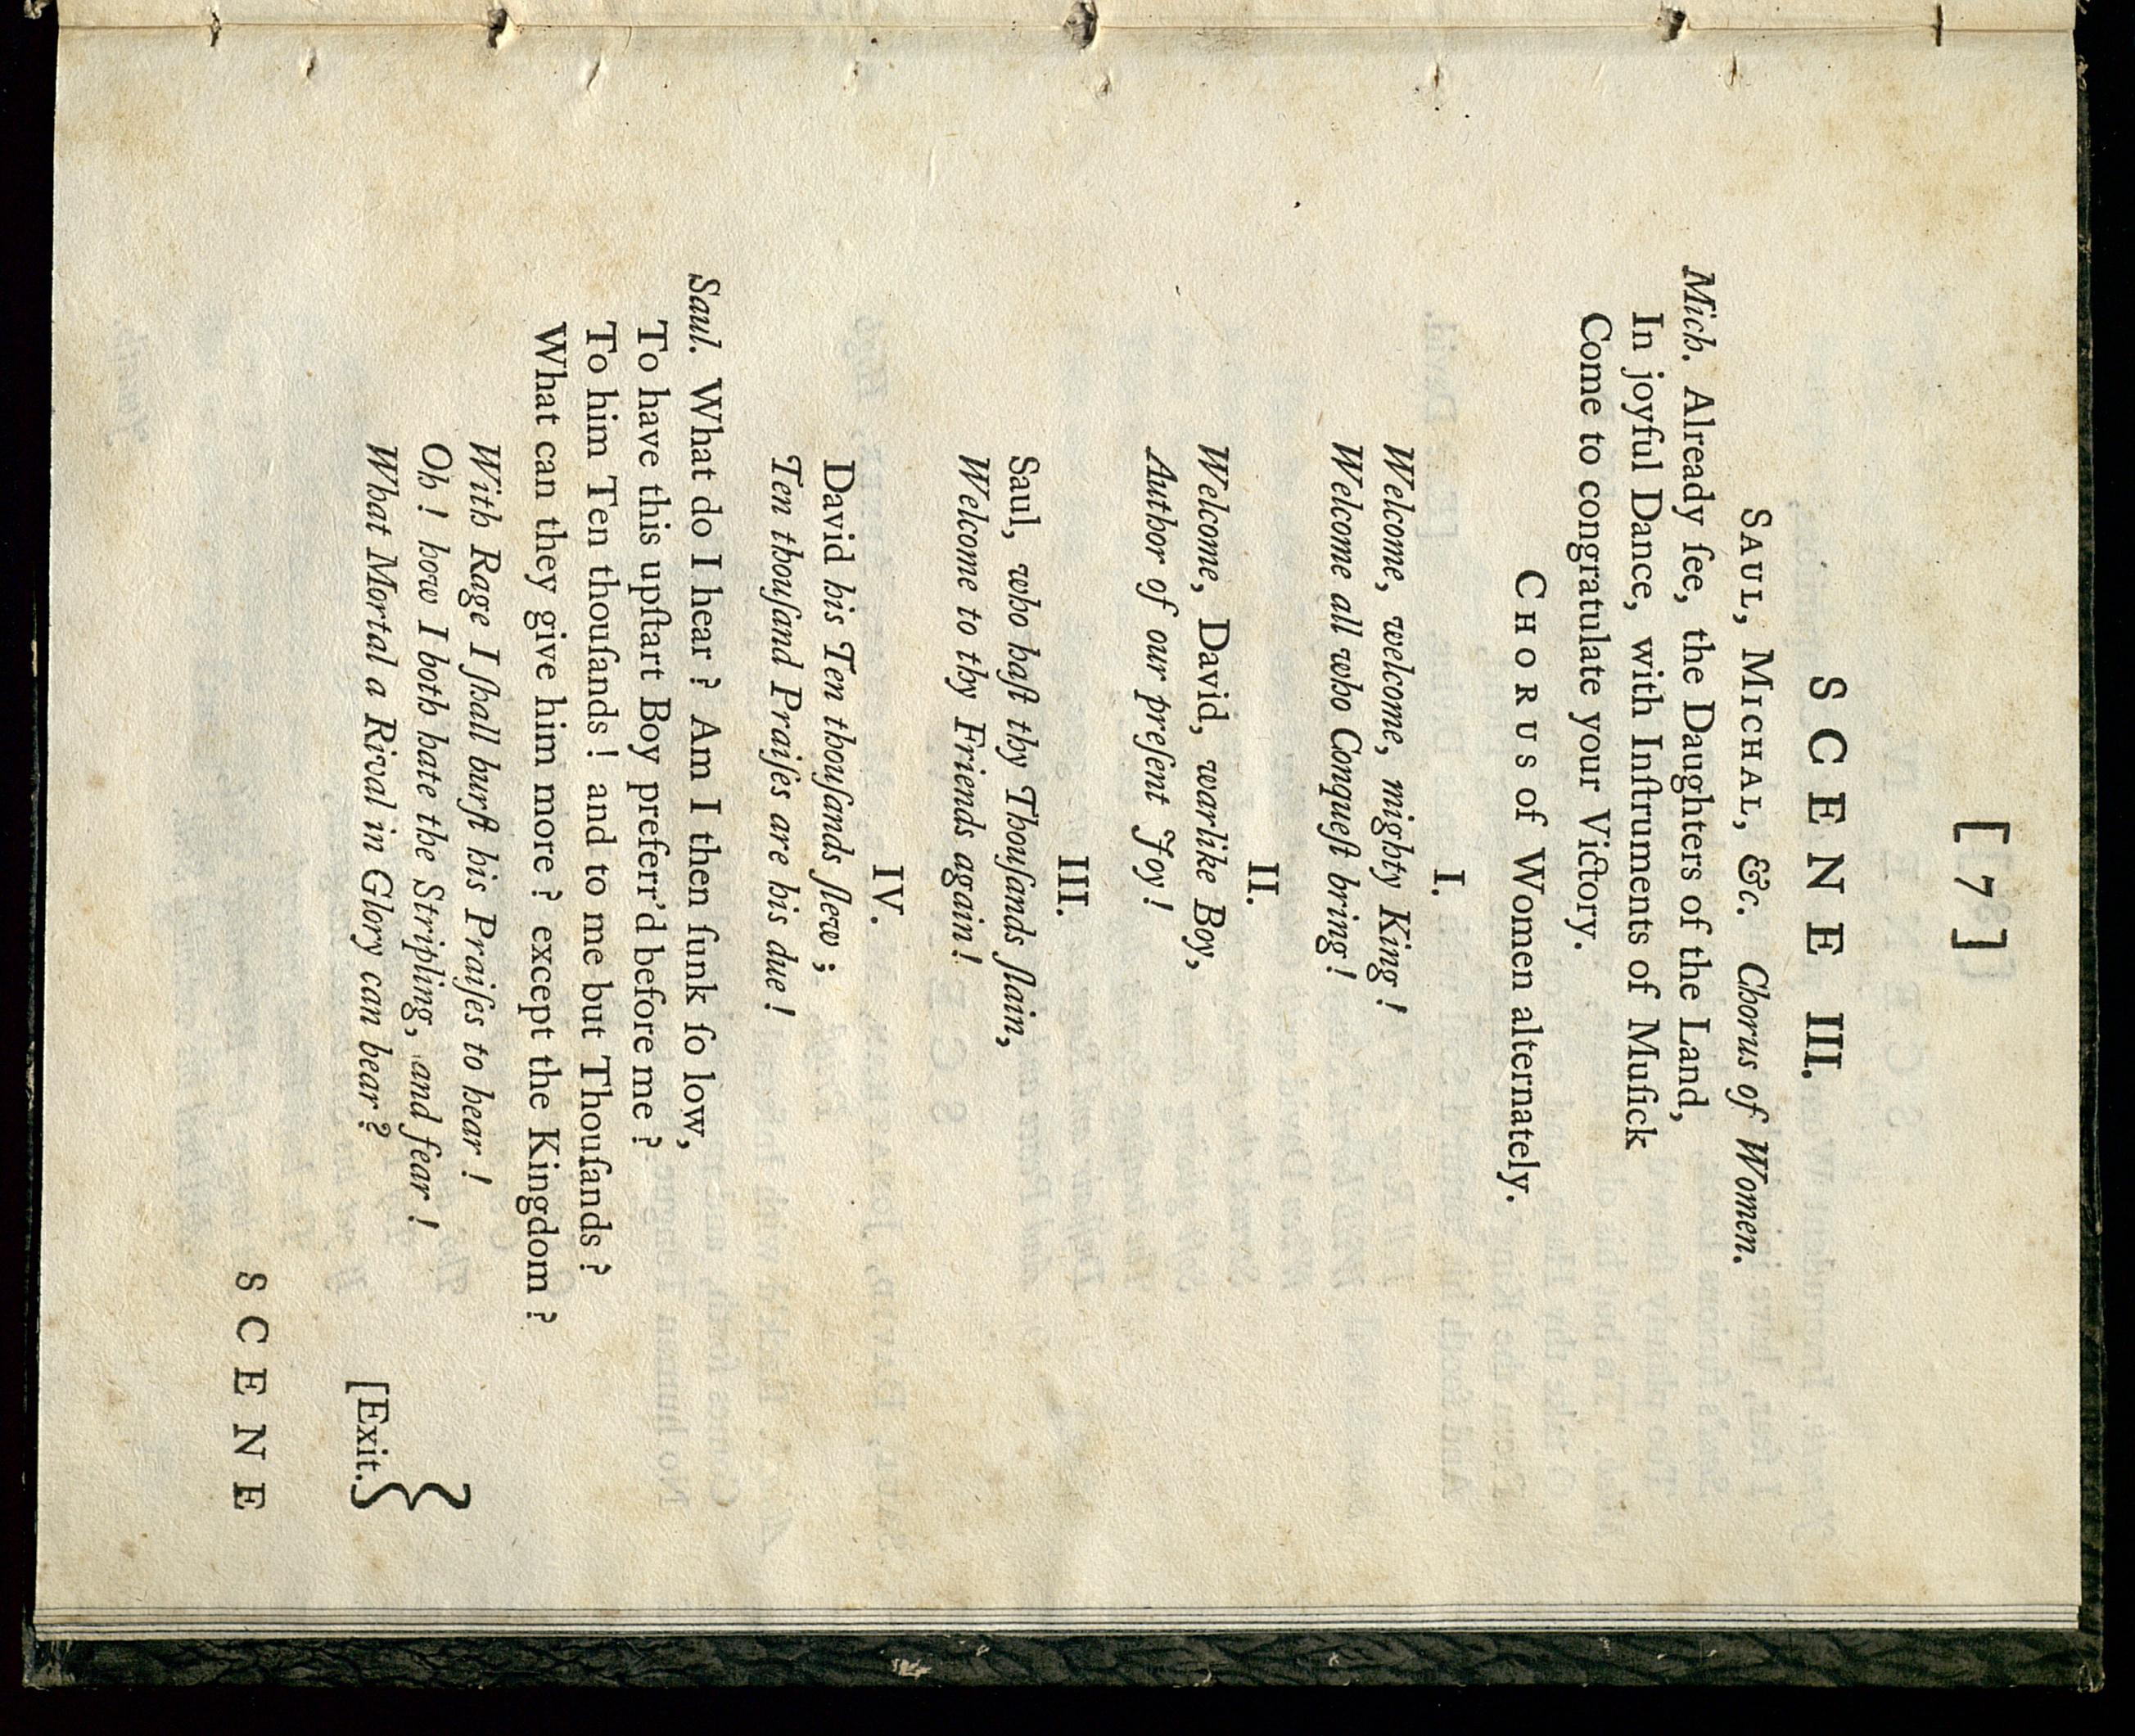 [ 7 ]
SCENE III.
SAUL, MICHAL, &c. Chorus of Women.
Mich. Already ſee, the Daughters of the Land,
In joyful Dance, with Inſtruments of Muſick
Come to congratulate your Victory.
CHORUS of Women alternately.
I.
Welcome, welcome, mighty King!
Welcome all who Conqueſt bring!
II.
Welcome, David, warlike Boy,
Author of our preſent Joy!
III.
Saul, who haſt thy Thouſands ſlain,
Welcome to thy Friends again!
IV.
David his Ten thouſands ſlew;
Ten thouſand Praiſes are his due!
Saul. What do I hear? Am I then ſunk ſo low,
To have this upſtart Boy preferr'd before me?
To him Ten thouſands! and to me but Thouſands?
What can they give him more? except the Kingdom?
With Rage I ſhall burſt his Praiſes to hear!
Oh! how I both hate the Stripling, and fear!
What Mortal a Rival in Glory can bear?
[Exit.
SCENE